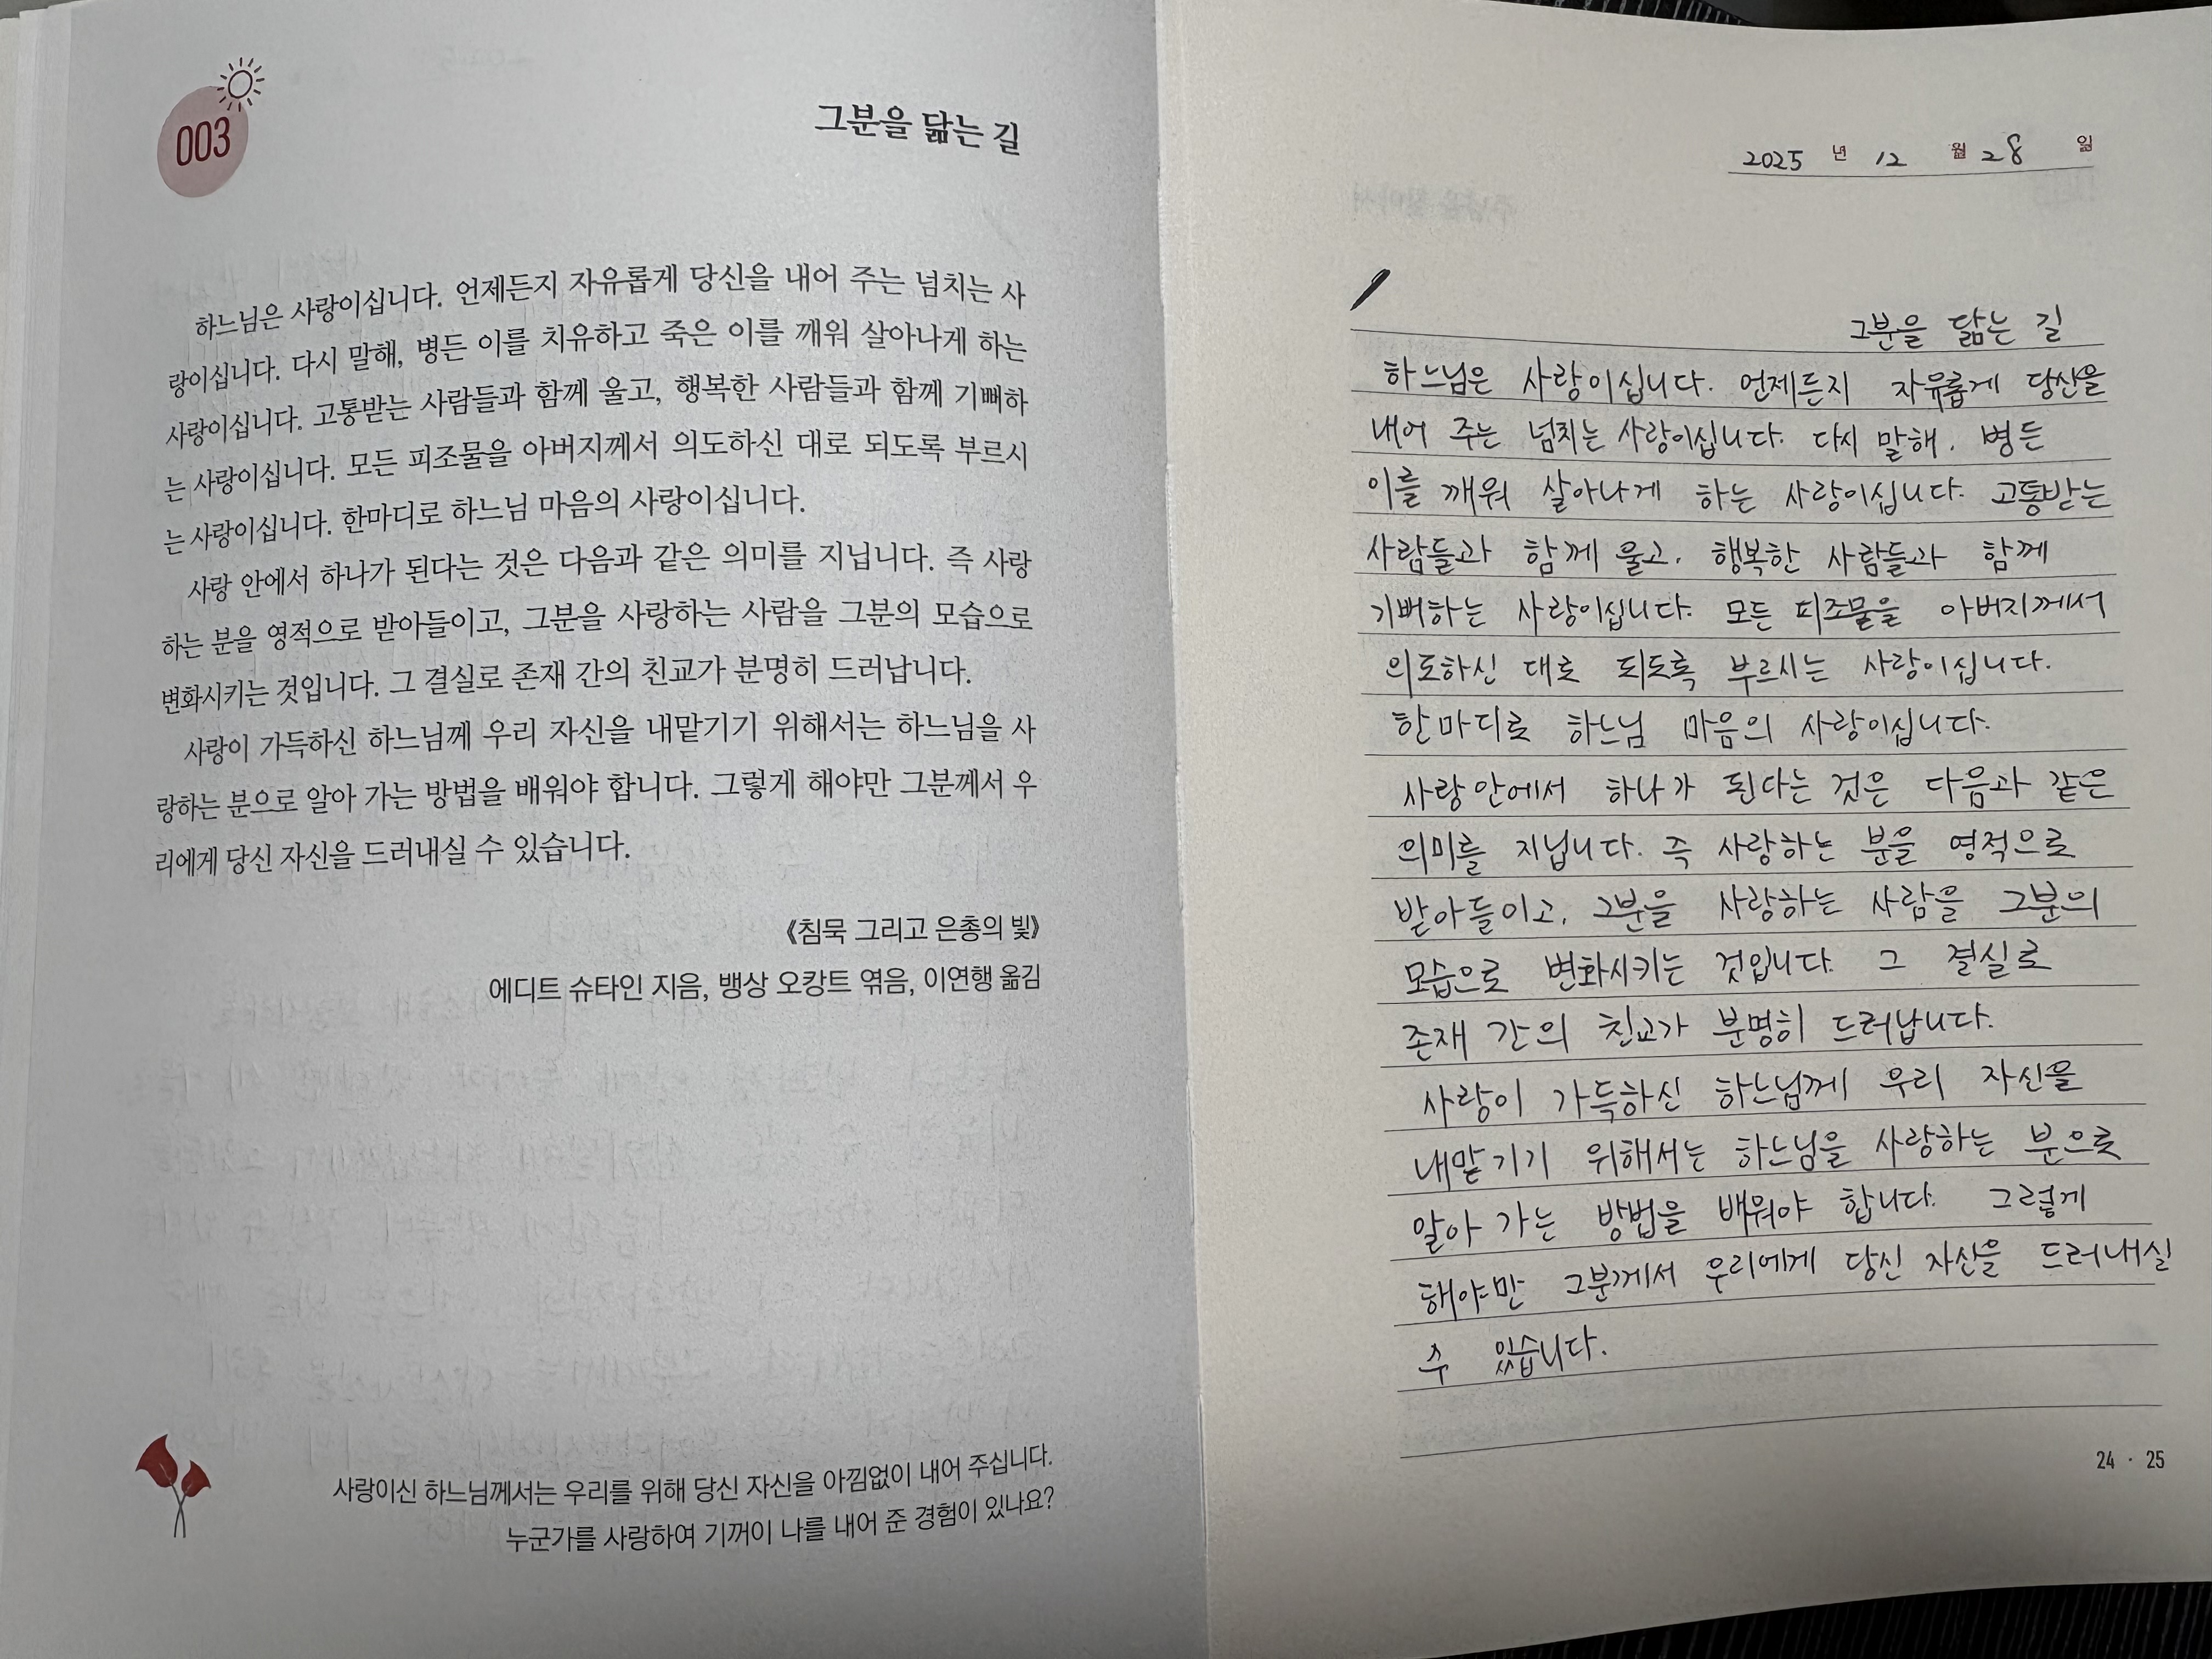 003
그분을 닮는 길
하느님은 사랑이십니다. 언제든지 자유롭게 당신을 내어 주는 넘치는 사
랑이십니다. 다시 말해, 병든 이를 치유하고 죽은 이를 깨워 살아나게 하는
사랑이십니다. 고통받는 사람들과 함께 울고, 행복한 사람들과 함께 기뻐하
는 사랑이십니다. 모든 피조물을 아버지께서 의도하신 대로 되도록 부르시
는 사랑이십니다. 한마디로 하느님 마음의 사랑이십니다.
사랑 안에서 하나가 된다는 것은 다음과 같은 의미를 지닙니다. 즉 사랑
하는 분을 영적으로 받아들이고, 그분을 사랑하는 사람을 그분의 모습으로
변화시키는 것입니다. 그 결실로 존재 간의 친교가 분명히 드러납니다.
사랑이 가득하신 하느님께 우리 자신을 내맡기기 위해서는 하느님을 사
랑하는 분으로 알아 가는 방법을 배워야 합니다. 그렇게 해야만 그분께서 우
리에게 당신 자신을 드러내실 수 있습니다.
《침묵 그리고 은총의 빛》
에디트 슈타인 지음, 뱅상 오캉트 엮음, 이연행 옮김
사랑이신 하느님께서는 우리를 위해 당신 자신을 아낌없이 내어 주십니다.
누군가를 사랑하여 기꺼이 나를 내어 준 경험이 있나요?
2025 년 12 월 28 일
그분을 닮는 길
하느님은 사랑이십니다. 언제든지 자유롭게 당신을
내어 주는 넘치는 사랑이십니다. 다시 말해, 병든
이를 깨워 살아나게 하는 사랑이십니다. 고통받는
사람들과 함께 울고, 행복한 사람들과 함께
기뻐하는 사랑이십니다. 모든 피조물을 아버지께서
의도하신 대로 되도록 부르시는 사랑이십니다.
한마디로 하느님 마음의 사랑이십니다.
사랑 안에서 하나가 된다는 것은 다음과 같은
의미를 지닙니다. 즉 사랑하는 분을 영적으로
받아들이고, 그분을 사랑하는 사람을 그분의
모습으로 변화시키는 것입니다. 그 결실로
존재 간의 친교가 분명히 드러납니다.
사랑이 가득하신 하느님께 우리 자신을
내맡기기 위해서는 하느님을 사랑하는 분으로
알아 가는 방법을 배워야 합니다. 그렇게
해야만 그분께서 우리에게 당신 자신을 드러내실
수 있습니다.
24 · 25